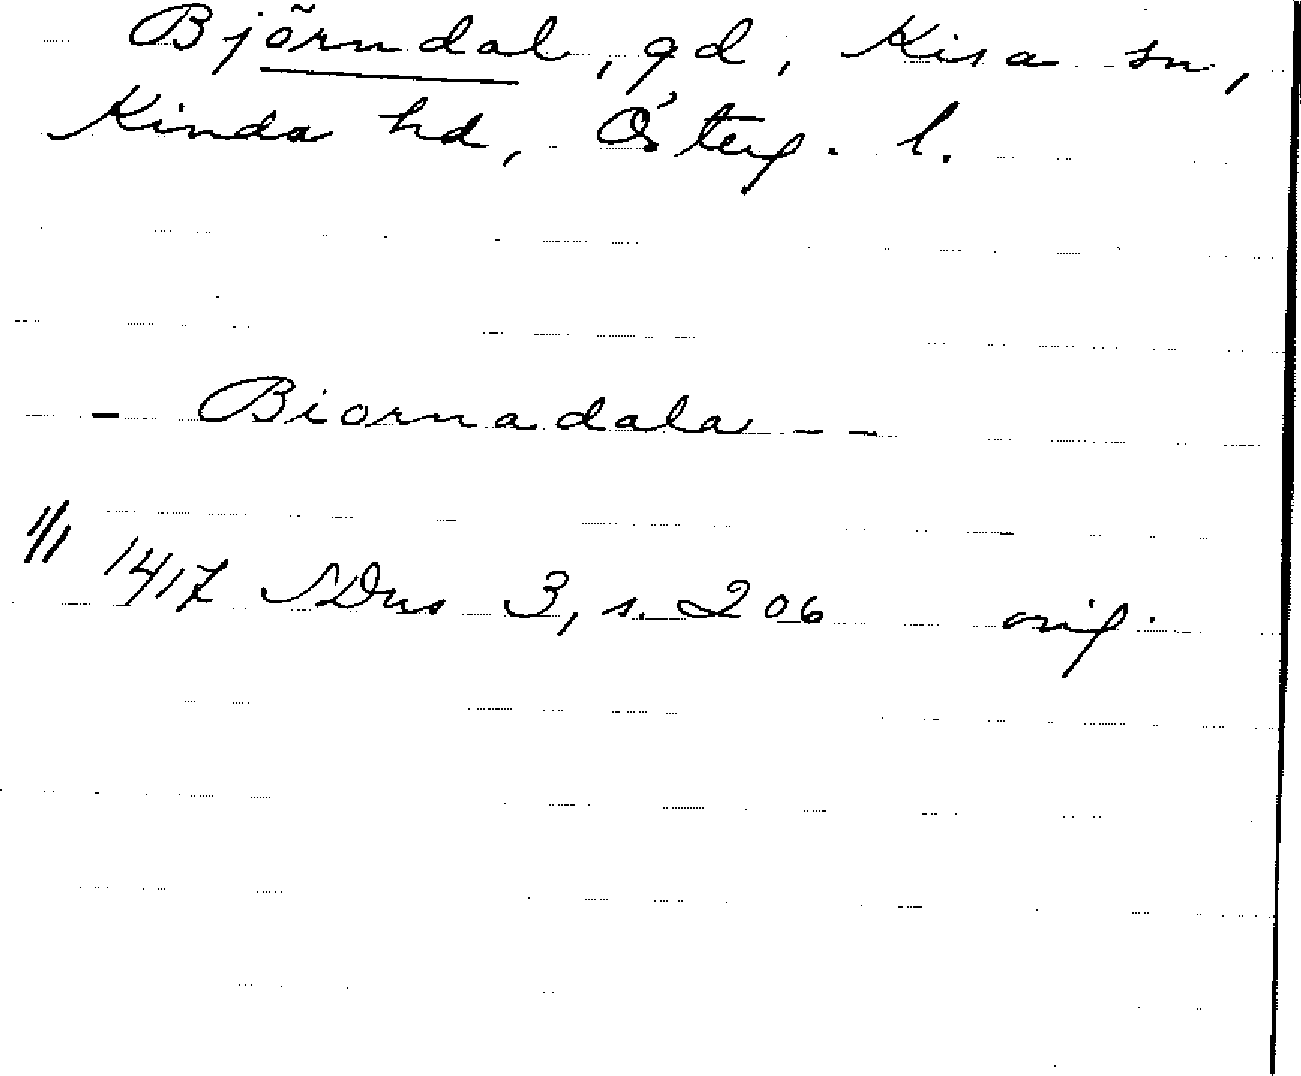 Björndal, gd, Kisa sn,
Kinda hd, Österg. l.
- Biornadala - -
1/1 1417 SDns 3, s. 206 orig.